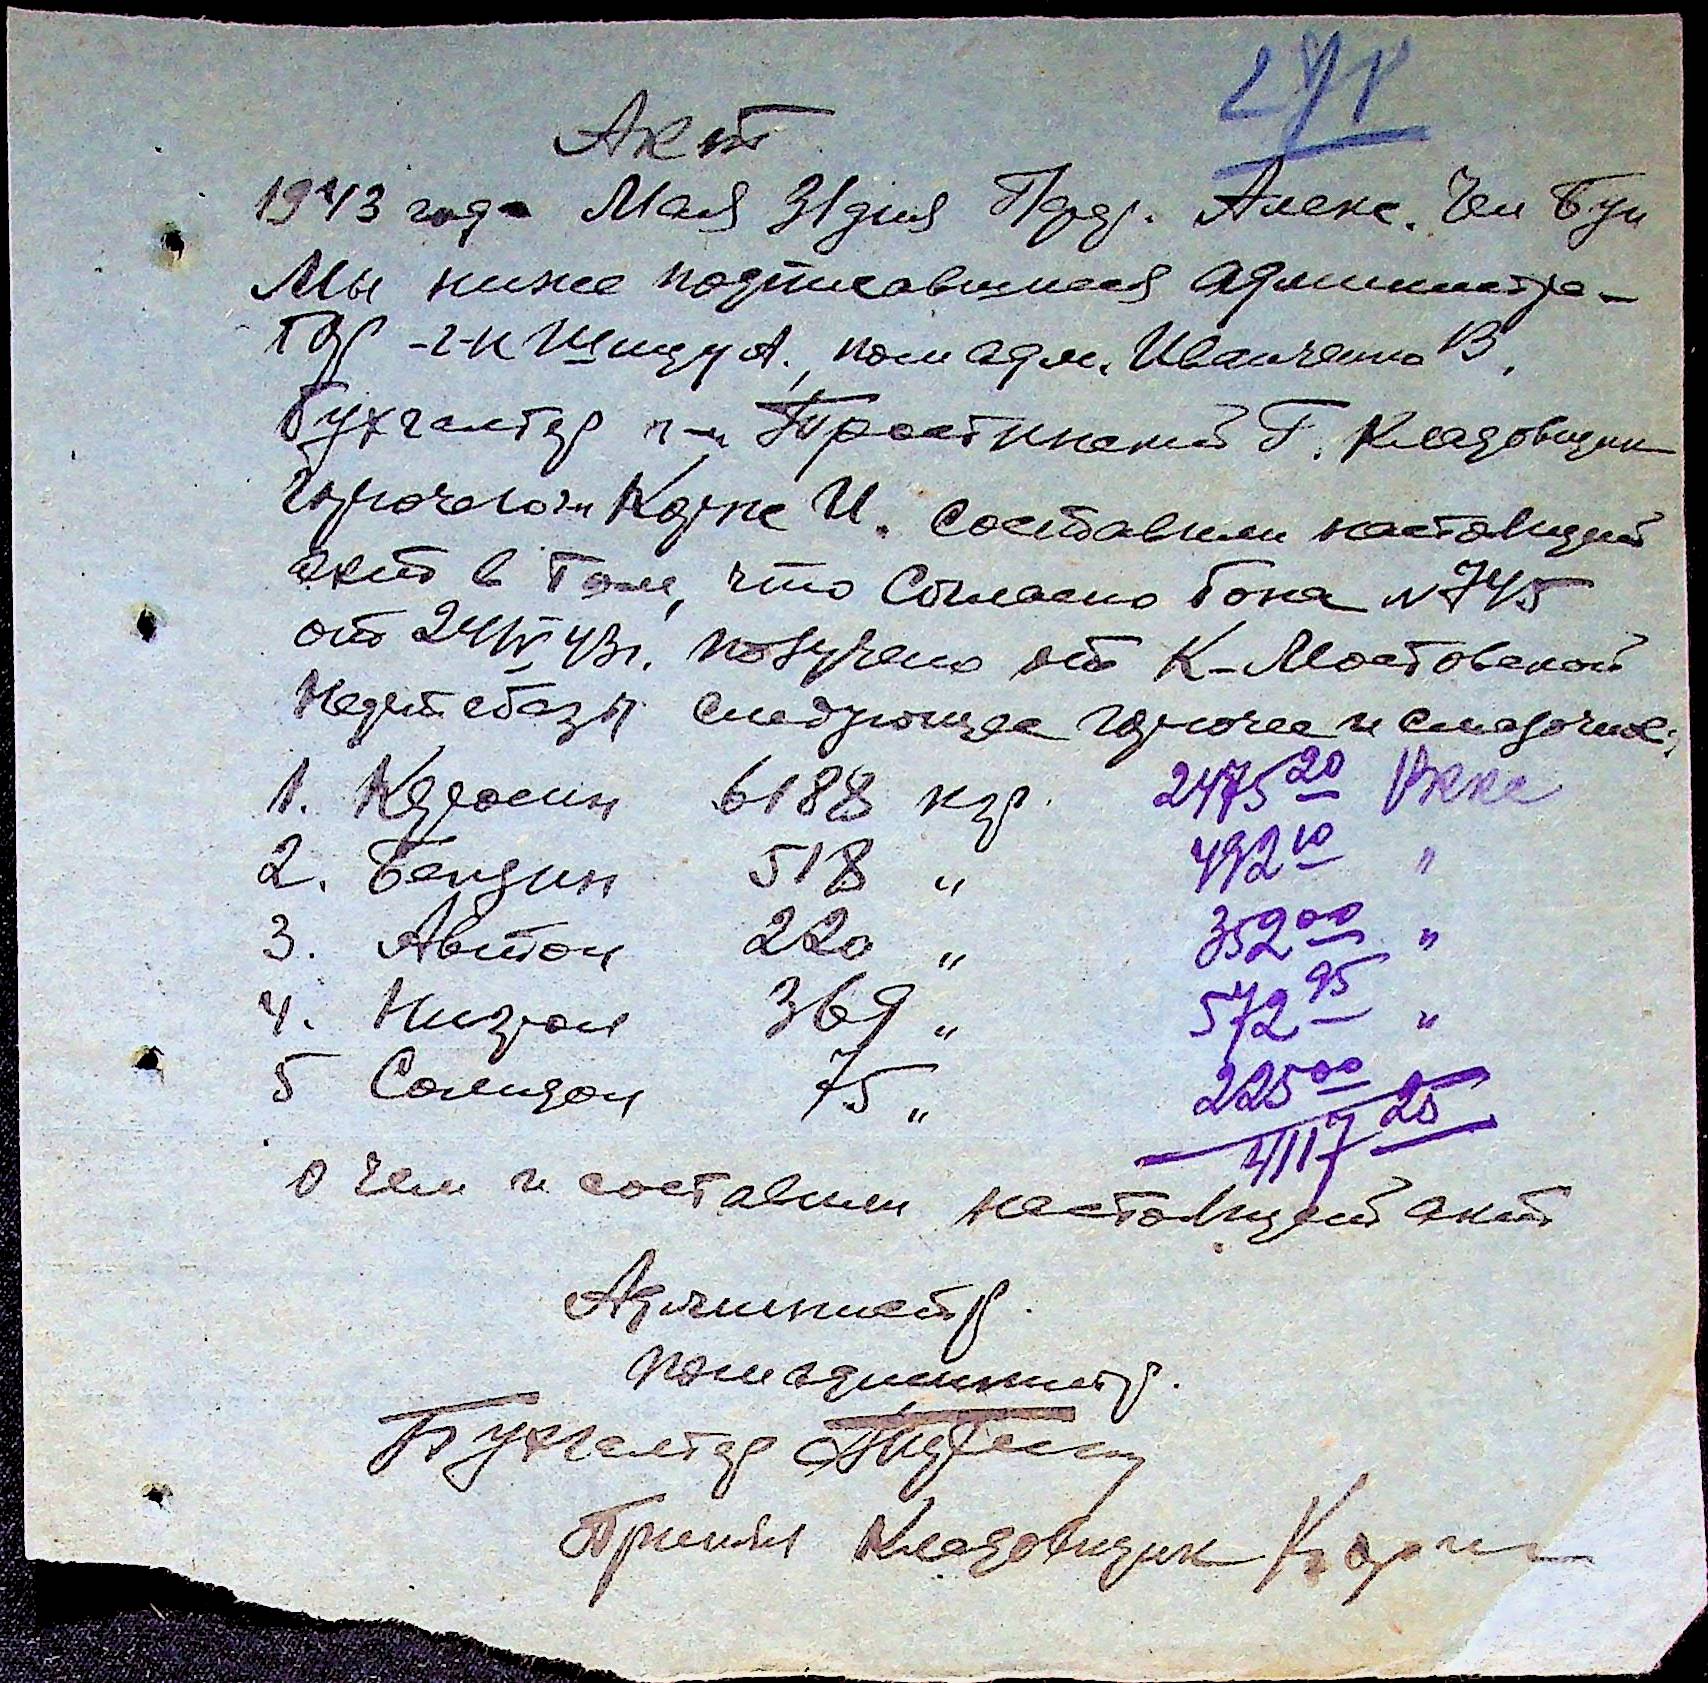 Акт
1943 года Мая 31 дня Перг. Алекс. Чем Бун
Мы ниже подписавшиеся Администра-
тор - г-н А., пом адм. Иванченко В.
Бухгалтер г-н Г. Кладовщик
горючего И. составили настоящий
акт в том, что Согласно бона N 745
от 24/IV 43 г. получено от К-Мостовской
Нефтебазы следующее горючее и смазочное:
1. Керосин 6188 кгр. 2475 20
2. Бензин 518 " 492 10 "
3. Автол 220 " 352 00 "
4. Нигрол 369 " 572 95 "
5 Солидол 75 " 225 00
4117 25
о чем и составлен настоящий акт
Администр.
пом администр.
Бухгалтер
Принял Кладовщик